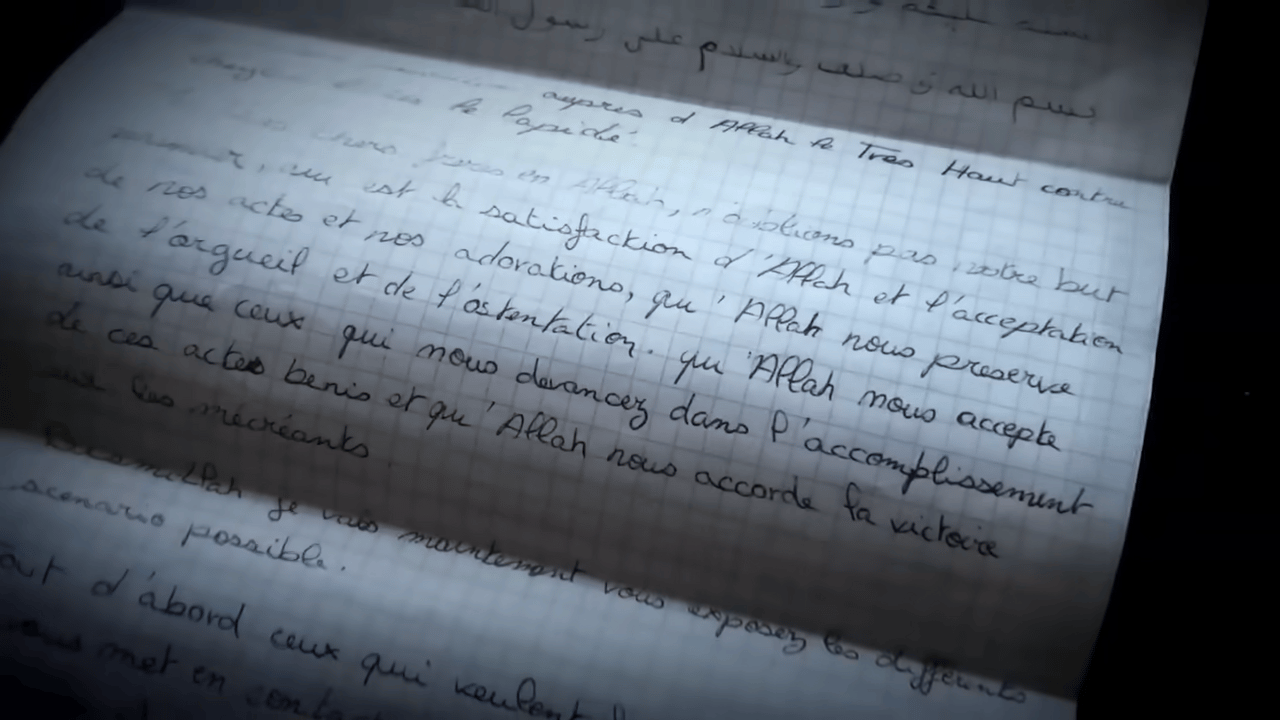 بسم الله و صلاة والسلام على رسول الله
auprès d'Allah le Très Haut contre
le lapidé.
chers frères en Allah, n'oblions pas notre but
est la satisfaction d'Allah et l'acceptation
de nos actes et nos adorations, qu'Allah nous preserve
de l'orgueil et de l'ostentation. qu'Allah nous accepte
ainsi que ceux qui nous devancez dans l'accomplissement
de ces actes benis et qu'Allah nous accorde la victoire
sur les mécréants.
Bismillah je vais maintenant vous exposez les differents
scenario possible.
tout d'abord ceux qui veulent
vous met en contact